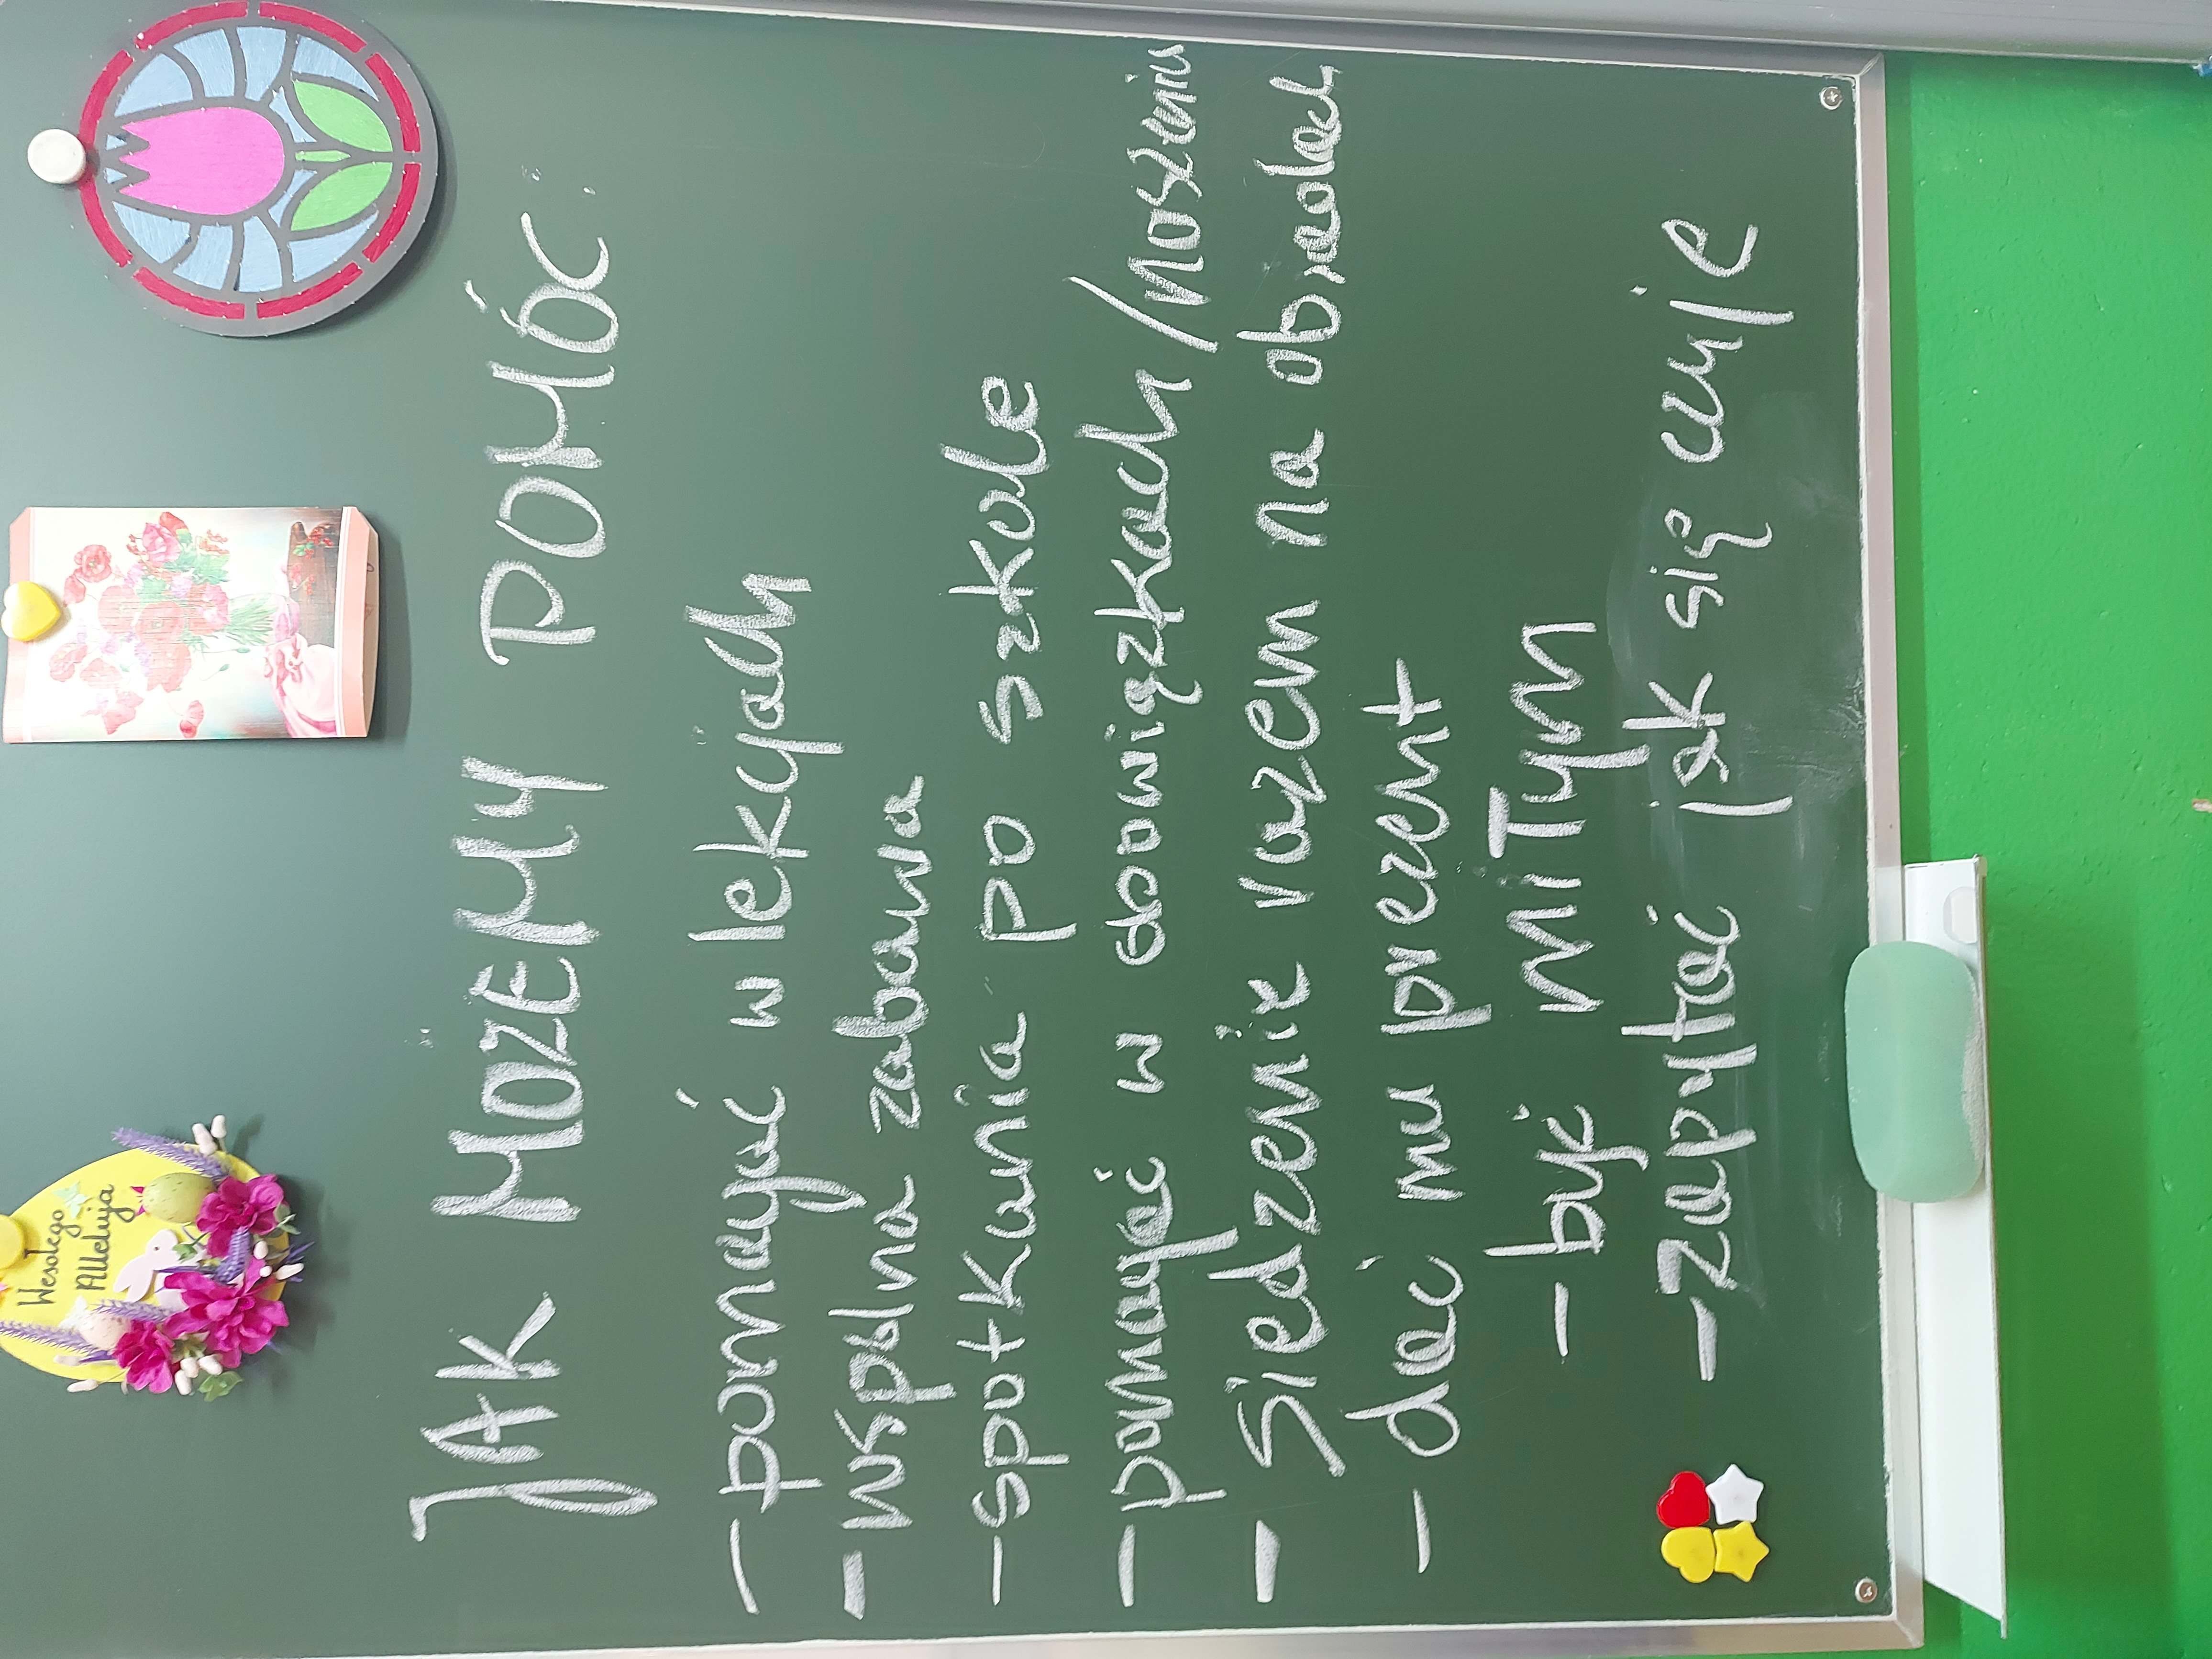 Wesołego
Alleluja
JAK MOŻEMY POMÓC:
- pomagać w lekcjach
- wspólna zabawa
- spotkania po szkole
- pomagać w obowiązkach / noszeniu
- Siedzenie razem na obiadach
- dać mu prezent
- być miłym
- zapytać jak się czuje